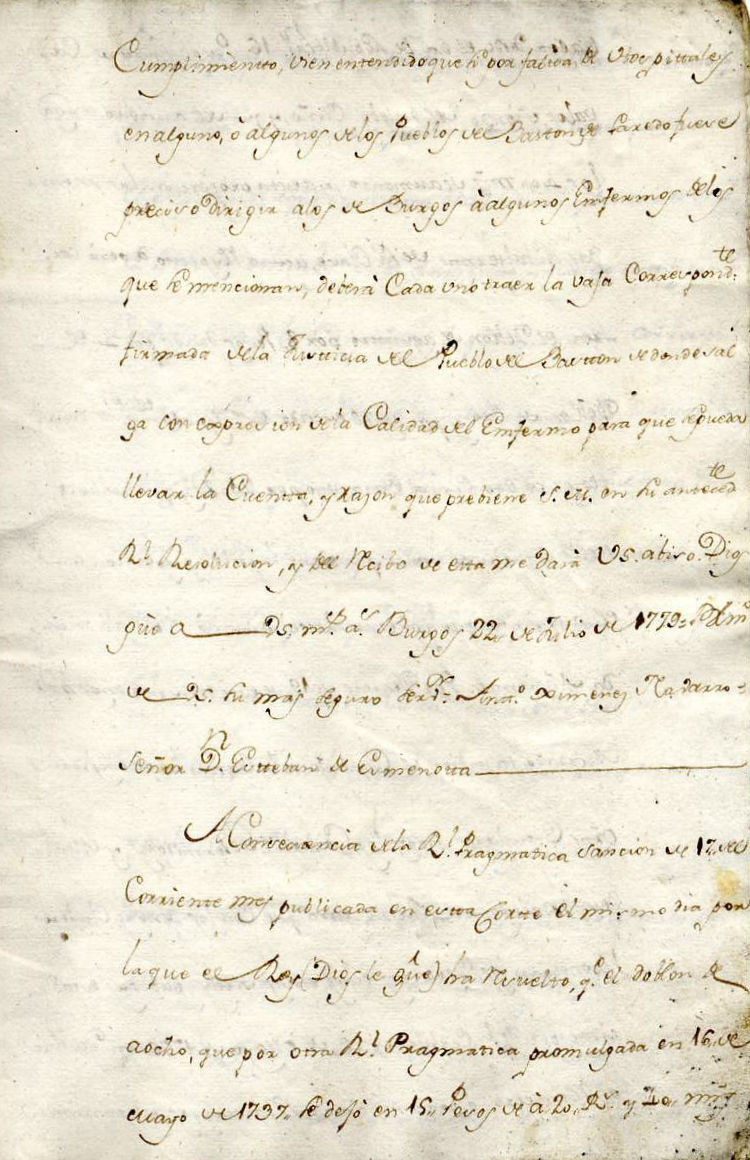 Cumplimiento, vien entendido que si por falta de Vospitales
en alguno, ò algunos de los Pueblos del Baston de Laredo fuese
preciso Dirigir alos de Burgos à algunos Enfermos delos
que se mencionan, deberà Cada uno traer la vaja Correspond.te
firmada dela Justicia del Pueblo del Baston de donde sal
ga con expresion dela Calidad del Enfermo para que sepueda
llevar la Cuenta, y razon que prebiene S. M. en su anteced.te
R.l Resolucion, y del Recibo de esta me darà VS. abiso. Dios
gûe a VS. m.s a.s Burgos 22 de Julio de 1779=
de VS. su mas seguro ser.or = Ant.o Ximenez Navarro =
Señor D.n Esteban de
A Consequencia dela R.l Pragmatica Sancion de 17,, del
Corriente mes publicada en esta Corte el mismo dia por
la que el Rey (Dios le gûe) ha resuelto, q.e el doblon de
aocho, que por otra R.l Pragmatica promulgada en 16,, de
Mayo de 1737,, se dejò en 15,, Pesos de à 20,, R.s y